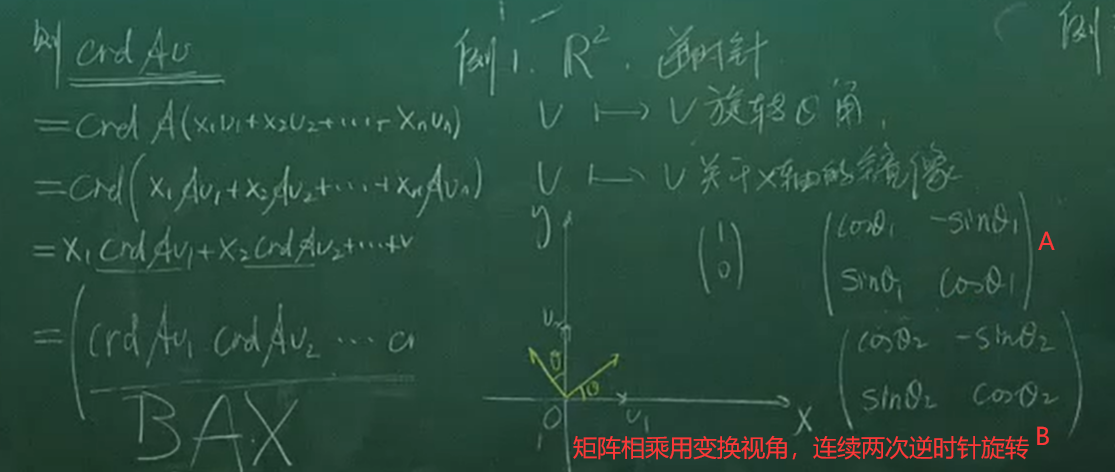 例 crd Av
= crd A(x₁v₁+x₂v₂+⋯+xₙvₙ)
= crd(x₁Av₁+x₂Av₂+⋯+xₙAvₙ)
= x₁crd Av₁+x₂crd Av₂+⋯+
= (crd Av₁ crd Av₂ ⋯ c
BAX
例1. R². 逆时针
v ↦ v旋转θ角,
v ↦ v关于x轴的镜像
y
(1
0)
(cosθ₁ -sinθ₁
sinθ₁ cosθ₁)
A
(cosθ₂ -sinθ₂
sinθ₂ cosθ₂)
B
v₂
θ
θ
O
v₁
X
矩阵相乘用变换视角，连续两次逆时针旋转
例